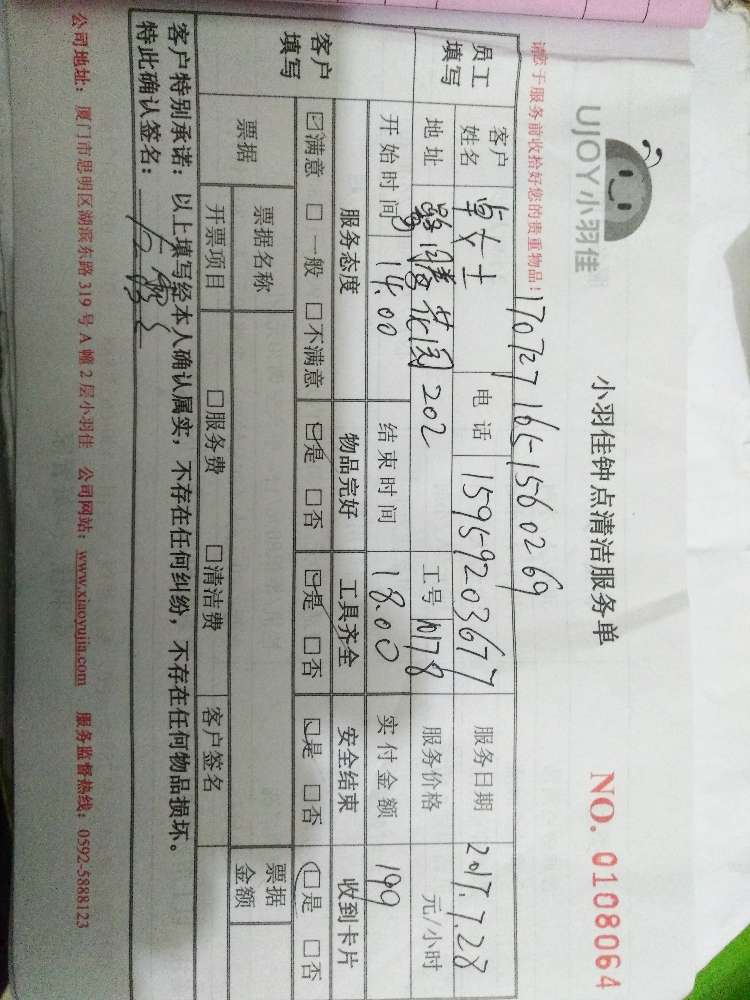 UJOY小羽佳
小羽佳钟点清洁服务单
NO. 0108064
请您于服务前收拾好您的贵重物品！
1707271651560269
员工填写 客户姓名 卓女士 电话 15959203677 服务日期 2017.7.28
地址 花园202 工号 服务价格 元/小时
开始时间 14.00 结束时间 18.00 实付金额 199
客户填写 服务态度 物品完好 工具齐全 安全结束 收到卡片
☑满意 □一般 □不满意 ☑是 □否 ☑是 □否 ☑是 □否 ☑是 □否
票据 票据名称 票据金额
开票项目 □服务费 □清洁费 客户签名
客户特别承诺：以上填写经本人确认属实，不存在任何纠纷，不存在任何物品损坏。
特此确认签名：
公司地址：厦门市思明区湖滨东路319号A幢2层小羽佳 公司网站：www.xiaoyujia.com 服务监督热线：0592-5888123